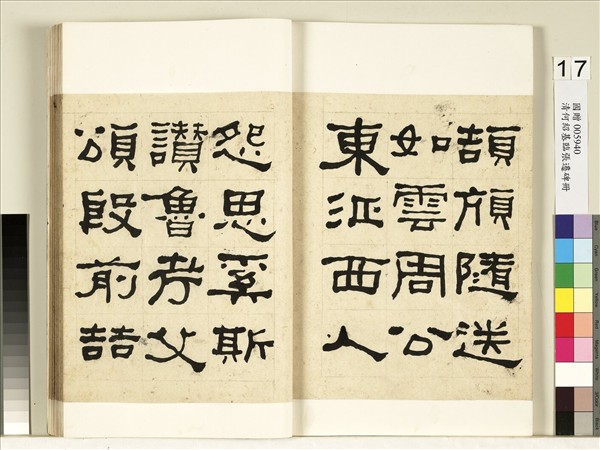 頡頏隨送
如雲周公
東征西人
怨思奚斯
讚魯考父
頌殷前喆
17
國贈 005940
清何紹基臨張遷碑冊